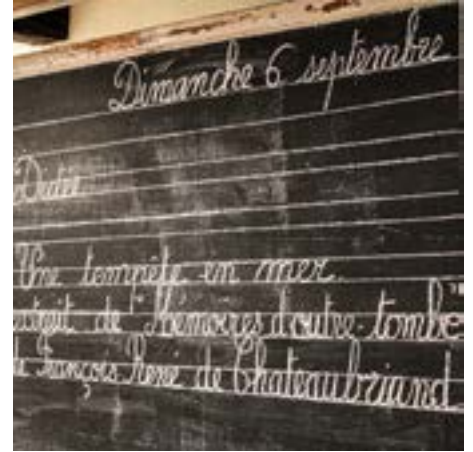 Dimanche 6 septembre
Dictée
Une tempête en mer.
extrait de "Mémoires d'outre-tombe"
de François René de Chateaubriand